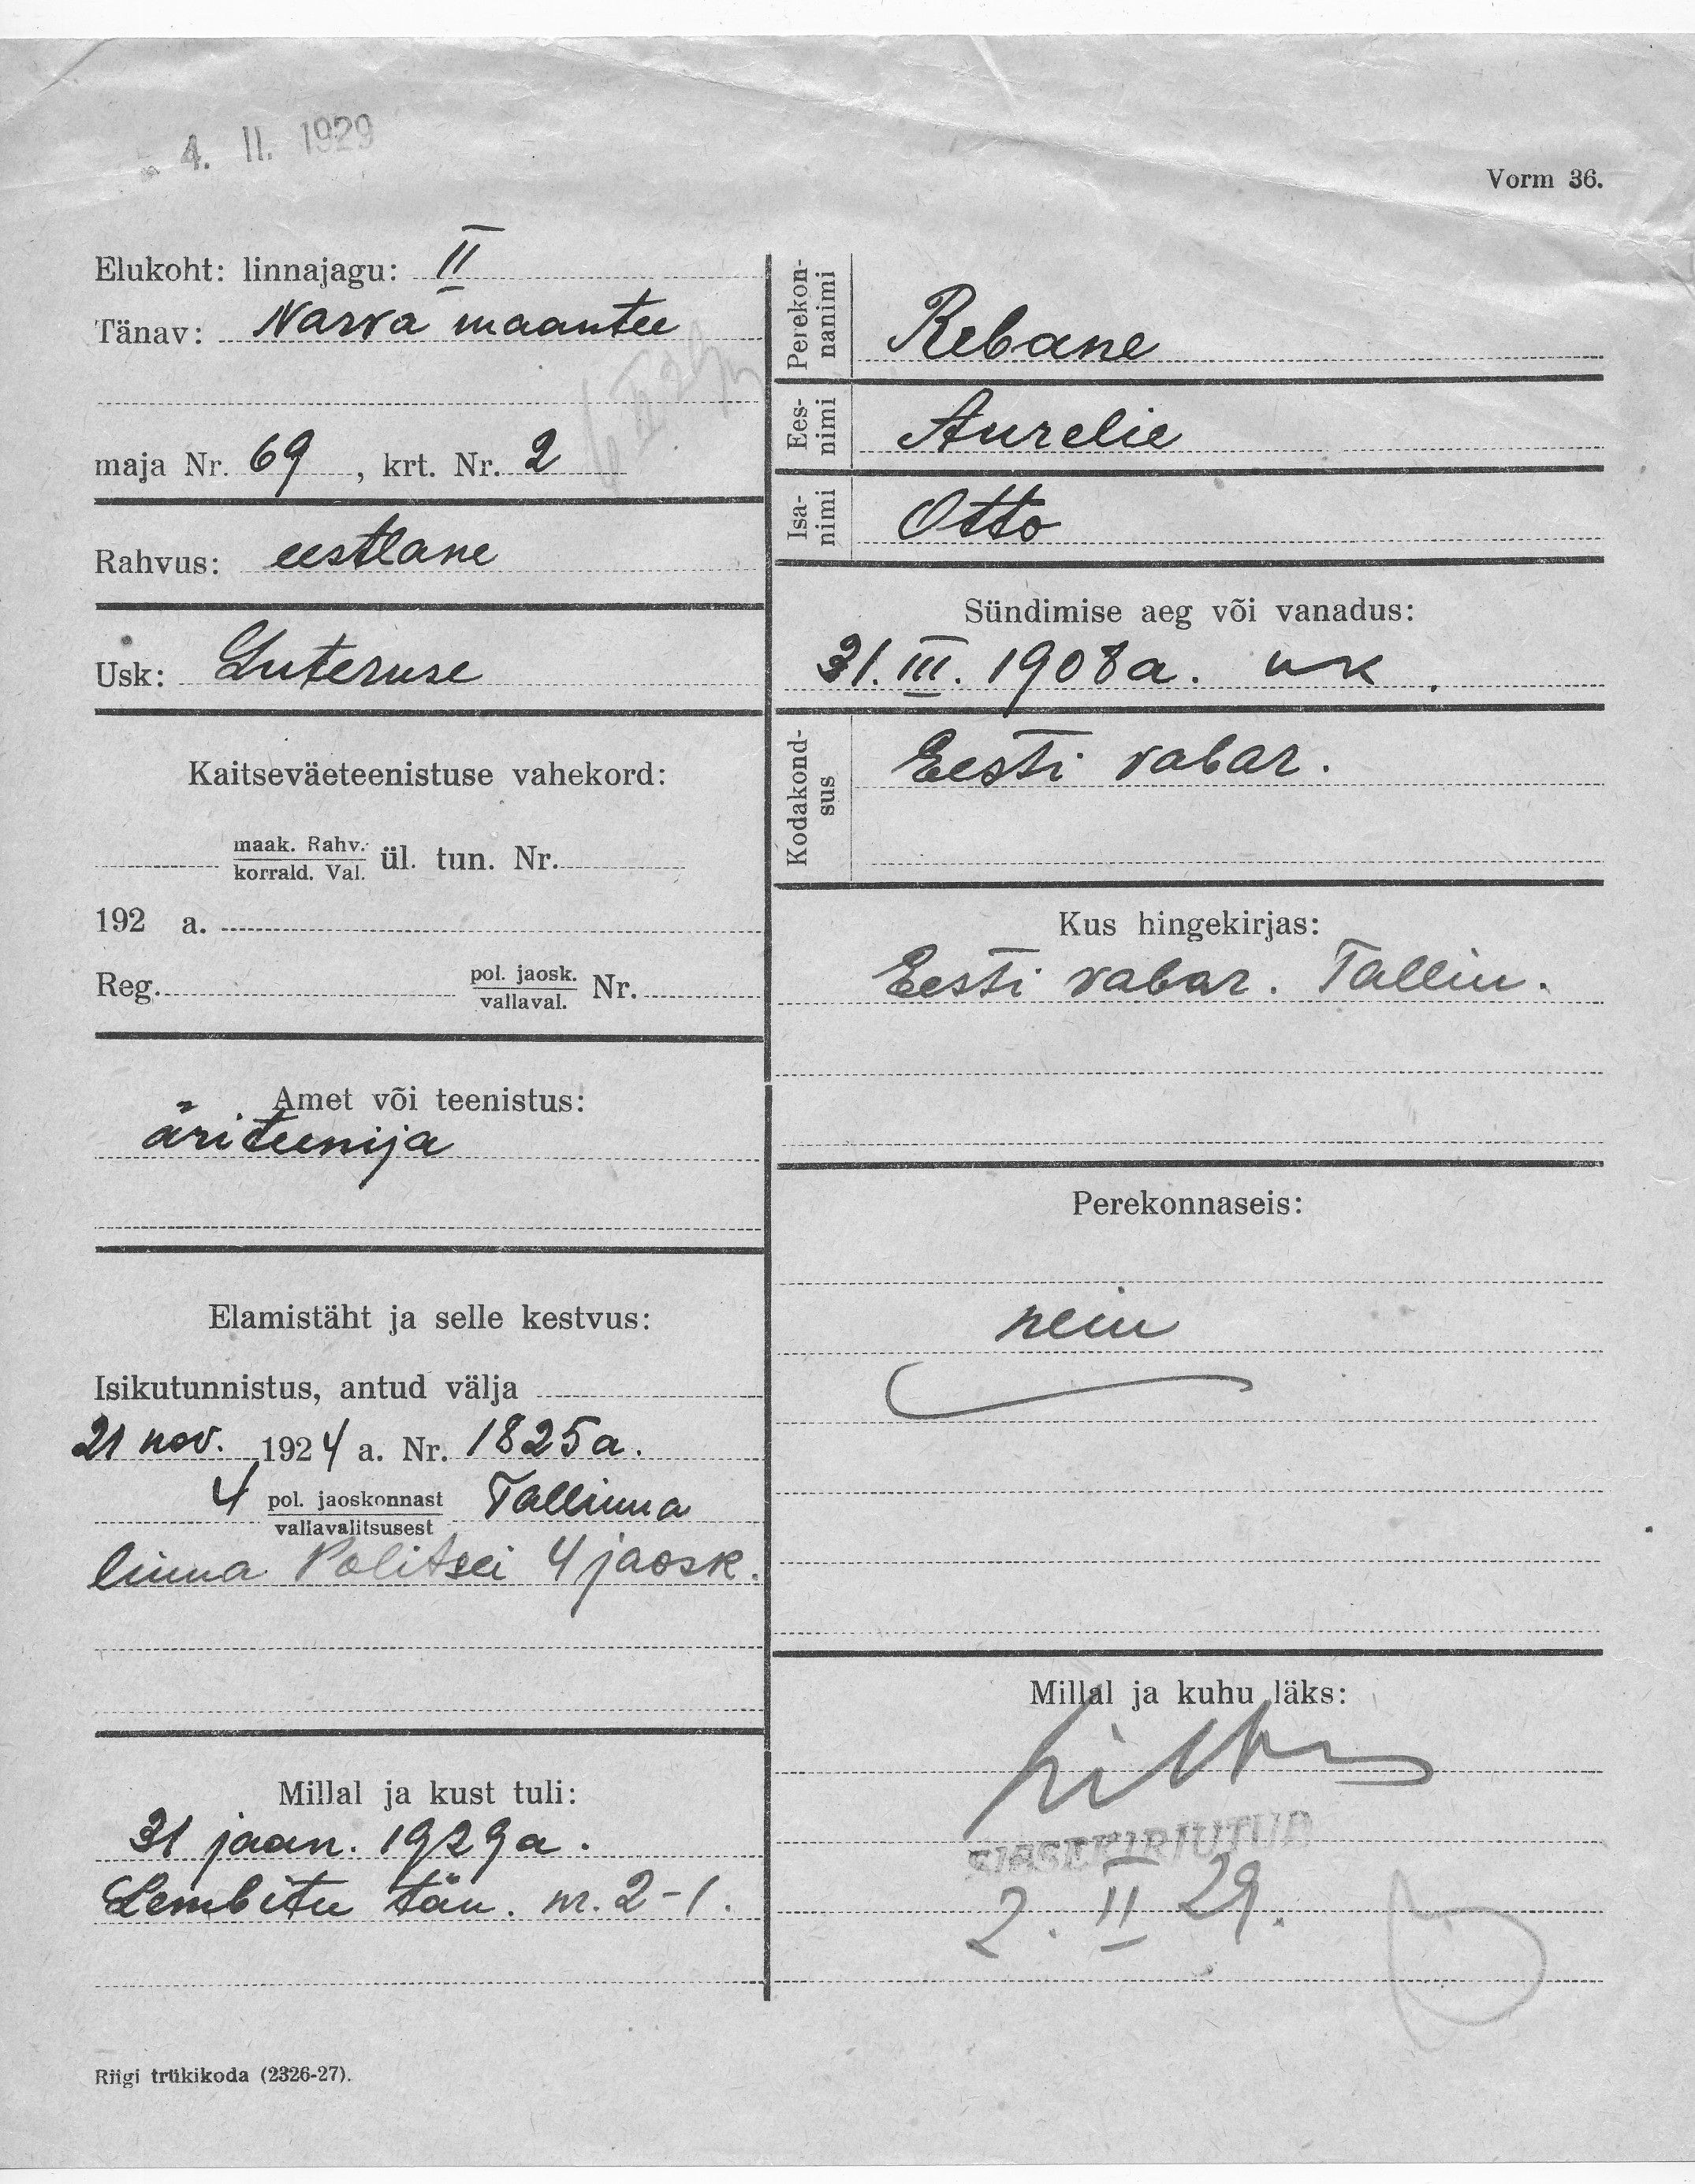 4. II. 1929
Vorm 36.
Elukoht: linnajagu: II
Tänav: Narva maantee
maja Nr. 69, krt. Nr. 2
Rahvus: eestlane
Usk: Luteruse
Kaitseväeteenistuse vahekord:
maak. Rahv.
korrald. Val. ül. tun. Nr.
192 a.
Reg. pol. jaosk. Nr.
vallaval.
Amet või teenistus:
äriteenija
Elamistäht ja selle kestvus:
Isikutunnistus, antud välja
21 nov. 1924 a. Nr. 1825a.
4 pol. jaoskonnast Tallinna
vallavalitsusest
linna Politsei 4 jaosk.
Millal ja kust tuli:
31 jaan. 1929a.
Lembitu tän. nr. 2-1.
Riigi trükikoda (2326-27).
Perekon-
nanimi
Rebane
Ees-
nimi
Aurelie
Isa-
nimi
Otto
Sündimise aeg või vanadus:
31. III. 1908a. uk.
Kodakond-
sus
Eesti vabar.
Kus hingekirjas:
Eesti vabar. Tallin.
Perekonnaseis:
neiu
Millal ja kuhu läks:
SISSEKIRJUTUD
2. II 29.